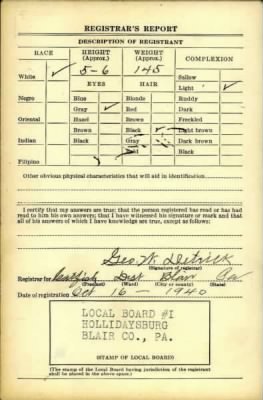 REGISTRAR'S REPORT
DESCRIPTION OF REGISTRANT
RACE HEIGHT (Approx.) WEIGHT (Approx.) COMPLEXION
White ✓ 5-6 145 Sallow
EYES HAIR Light ✓
Negro Blue Blonde Ruddy
Gray ✓ Red Dark
Oriental Hazel Brown Freckled
Brown Black ✓ Light brown
Indian Black Gray Dark brown
Bald Black
Filipino
Other obvious physical characteristics that will aid in identification
I certify that my answers are true; that the person registered has read or has had
read to him his own answers; that I have witnessed his signature or mark and that
all of his answers of which I have knowledge are true, except as follows:
Geo. W. Detrick
(Signature of registrar)
Registrar for Dist Blair Pa
(Precinct) (Ward) (City or county) (State)
Date of registration Oct 16 - 1940
LOCAL BOARD #1
HOLLIDAYSBURG
BLAIR CO., PA.
(STAMP OF LOCAL BOARD)
(The stamp of the Local Board having jurisdiction of the registrant
shall be placed in the above space.)